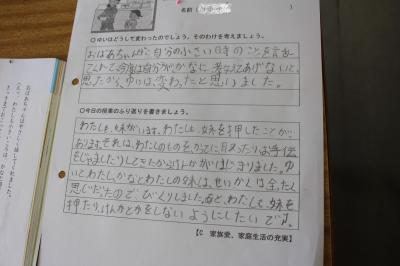 名前
○ゆいはどうして変わったのでしょう。そのわけを考えましょう。
おばあちゃんから自分の小さい時のことを言
て今度は自分がかなに、
思ったから、ゆいは、変わったと思いました。
○今日の授業のふり返りを書きましょう。
わたしも、妹がいます。わたしも、妹を押したことが
あります。それは、わたしのものをかってに
をじゃましたりしてきたからけんかがはじまりました。ゆ
いとわたし、かなとわたしの妹は、せいかくは全、たく
同じだったので、びっくりしました。
押たり、けんかとかをしないようにしたいです。
【C 家族愛、家庭生活の充実】